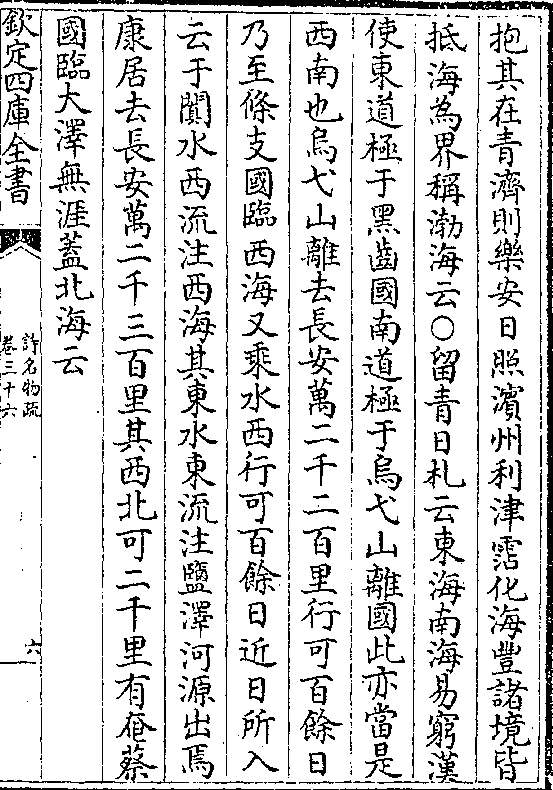 抱其在青濟則樂安日照濱州利津霑化海豐諸境皆
抵海為界稱渤海云○留青日札云東海南海易窮漢
使東道極于黑齒國南道極于烏弋山離國此亦當是
西南也烏弋山離去長安萬二千二百里行可百餘日
乃至條支國臨西海又乘水西行可百餘日近日所入
云于闐水西流注西海其東水東流注鹽澤河源出焉
康居去長安萬二千三百里其西北可二千里有奄蔡
國臨大澤無涯蓋北海云
欽定四庫全書
詩名物疏
卷三十六
六